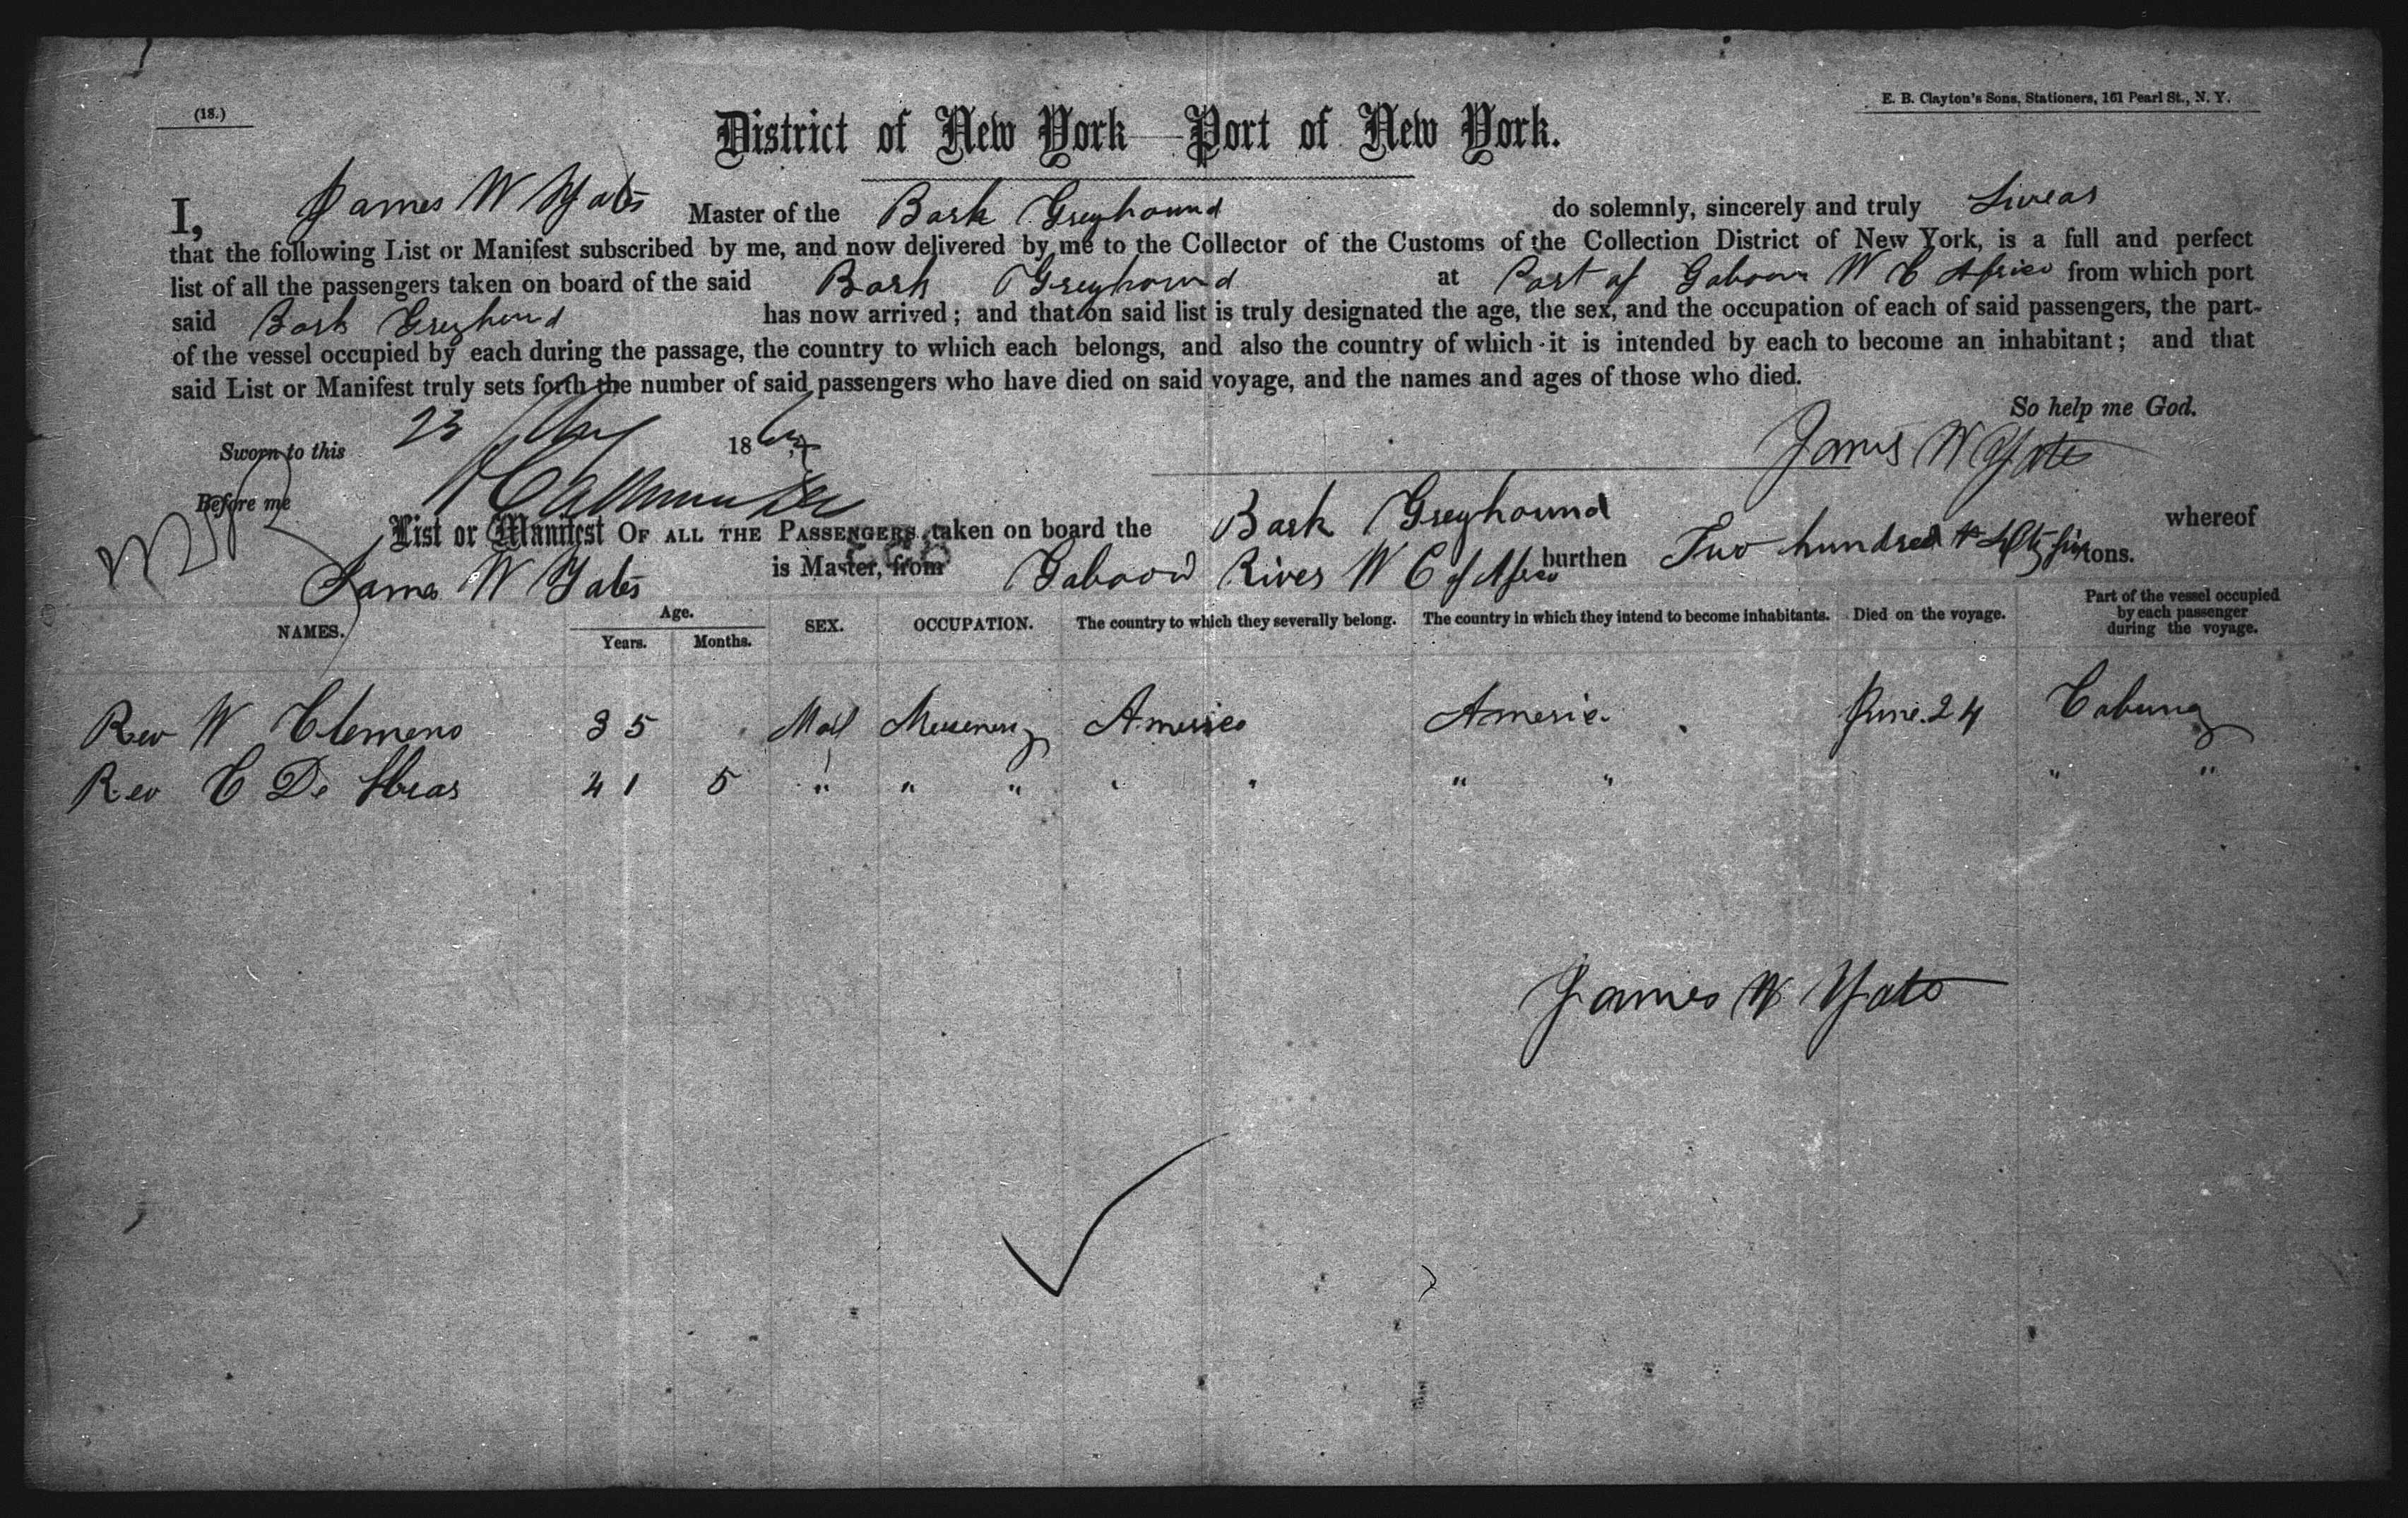 (18.)
E. B. Clayton's Sons, Stationers, 161 Pearl St., N. Y.
District of New York—Port of New York.
I, James W Yates Master of the Bark Greyhound do solemnly, sincerely and truly Swear
that the following List or Manifest subscribed by me, and now delivered by me to the Collector of the Customs of the Collection District of New York, is a full and perfect
list of all the passengers taken on board of the said Bark Greyhound at Port of Gaboon W C Africa from which port
said Bark Greyhound has now arrived; and that on said list is truly designated the age, the sex, and the occupation of each of said passengers, the part-
of the vessel occupied by each during the passage, the country to which each belongs, and also the country of which it is intended by each to become an inhabitant; and that
said List or Manifest truly sets forth the number of said passengers who have died on said voyage, and the names and ages of those who died.
So help me God.
Sworn to this 23 18
James W Yates
Before me
List or Manifest OF ALL THE PASSENGERS taken on board the Bark Greyhound whereof
James W Yates is Master, from Gaboon River W C of Africa burthen Two hundred & tons.
NAMES. Age. Years. Months. SEX. OCCUPATION. The country to which they severally belong. The country in which they intend to become inhabitants. Died on the voyage. Part of the vessel occupied by each passenger during the voyage.
Rev W Clemens 35 Mal America Americ June 24
Rev C De Heas 41 5 " " " " " " " " "
James W Yates